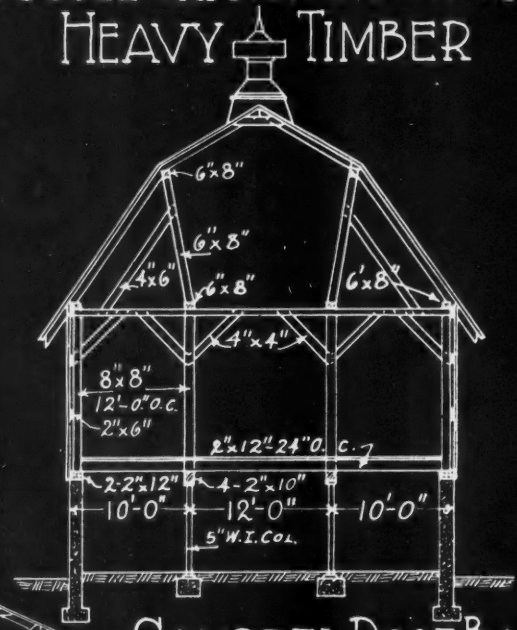 HEAVY TIMBER
6"x8"
6"x8"
4"x6"
6"x8"
6'x8"
4"x4"
8"x8"
12'-0"O.C.
2"x6"
2"x12"-24"O.C.
2-2"x12"
4-2"x10"
10'-0"
12'-0"
10'-0"
5"W.I.COL.